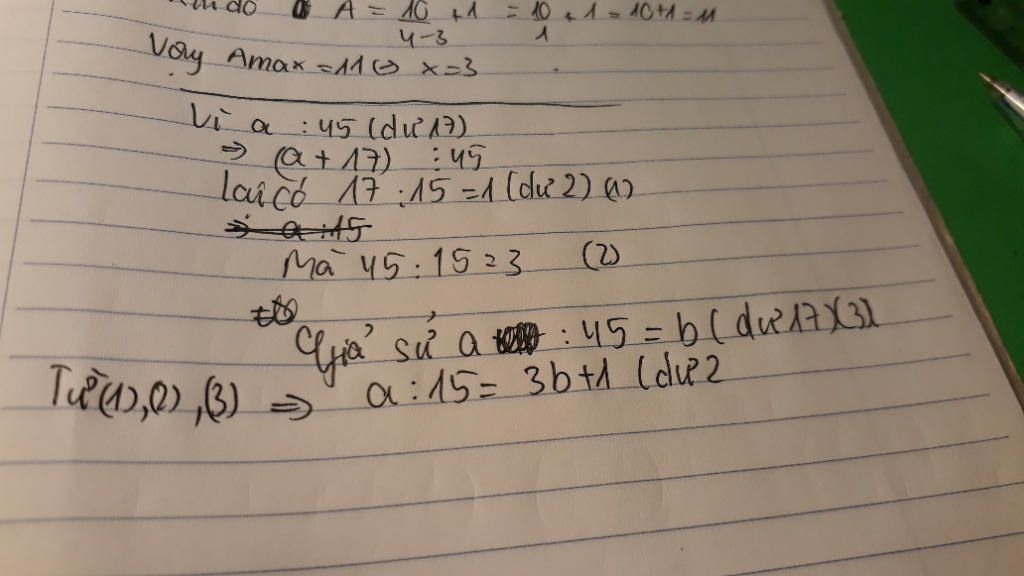 A = 10/4-3 +1 = 10/1 + 1 = 10+1 = 11
Vậy Amax = 11 ⇔ x = 3
Vì a : 45 (dư 17)
⇒ (a + 17) ⋮ 45
lại có 17 : 15 = 1 (dư 2) (1)
⇒ a : 15
Mà 45 : 15 = 3 (2)
Giả sử a : 45 = b (dư 17)(3)
Từ (1), (2), (3) ⇒ a : 15 = 3b+1 (dư 2